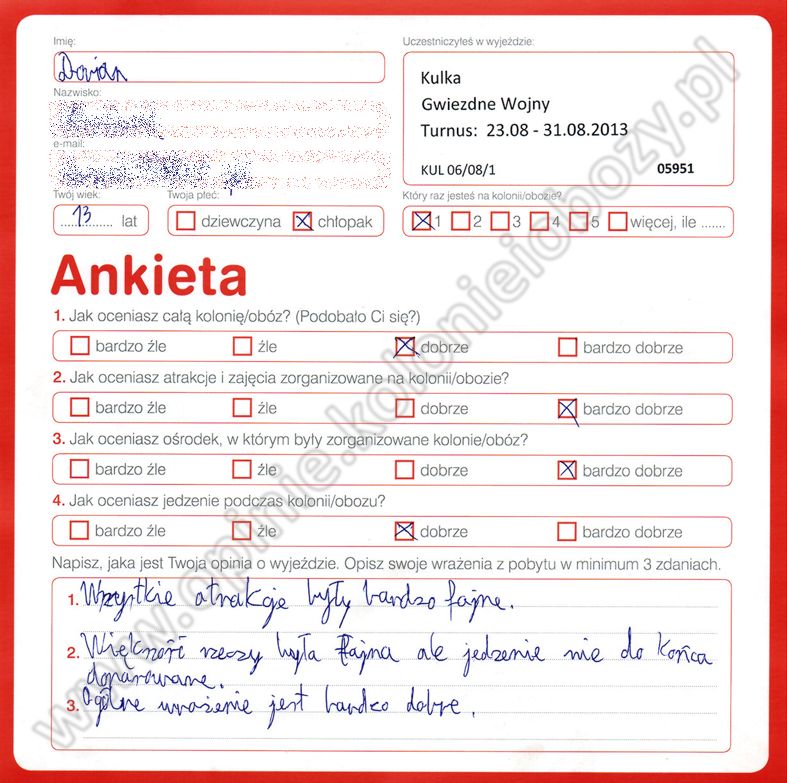 Imię:
Uczestniczyłeś w wyjeździe:
Dorian
Kulka
Gwiezdne Wojny
Turnus: 23.08 - 31.08.2013
KUL 06/08/1 05951
Nazwisko:
e-mail:
Twój wiek: Twoja płeć: Który raz jesteś na kolonii/obozie?
13 lat dziewczyna chłopak 1 2 3 4 5 więcej, ile .......
Ankieta
1. Jak oceniasz całą kolonię/obóz? (Podobało Ci się?)
bardzo źle źle dobrze bardzo dobrze
2. Jak oceniasz atrakcje i zajęcia zorganizowane na kolonii/obozie?
bardzo źle źle dobrze bardzo dobrze
3. Jak oceniasz ośrodek, w którym były zorganizowane kolonie/obóz?
bardzo źle źle dobrze bardzo dobrze
4. Jak oceniasz jedzenie podczas kolonii/obozu?
bardzo źle źle dobrze bardzo dobrze
Napisz, jaka jest Twoja opinia o wyjeździe. Opisz swoje wrażenia z pobytu w minimum 3 zdaniach.
1. Wszystkie atrakcje były bardzo fajne.
2. Większość rzeczy była fajna ale jedzenie nie do końca
doparowane.
3. Ogólne wrażenie jest bardzo dobre.
www.opinie.kolonieiobozy.pl